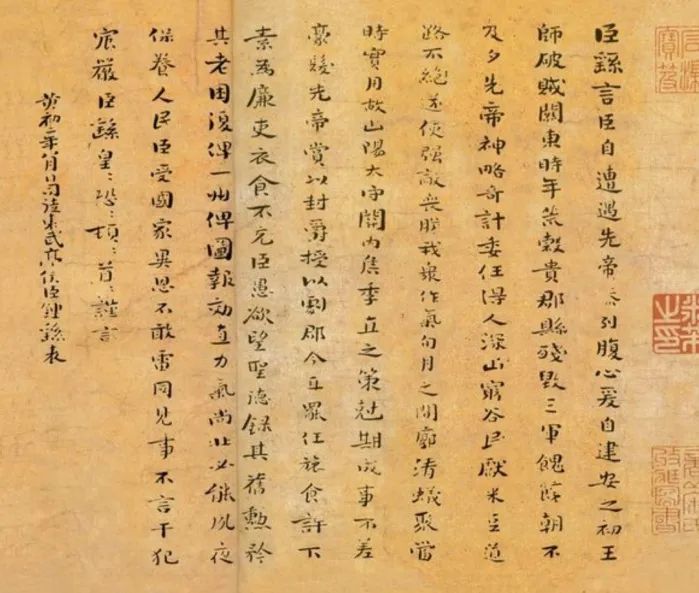 臣繇言臣自遭遇先帝忝列腹心爰自建安之初王
師破賊關東時年荒穀貴郡縣殘毀三軍餽饟朝不
及夕先帝神略奇計委任得人深山窮谷民獻米豆道
路不絕遂使強敵喪膽我衆作氣旬月之間廓清蟻聚當
時實用故山陽太守關內侯季直之策尅期成事不差
豪髮先帝賞以封爵授以劇郡今直罷任旅食許下
素爲廉吏衣食不充臣愚欲望聖德錄其舊勳矜
其老困復俾一州俾圖報効直力氣尚壯必能夙夜
保養人民臣受國家異恩不敢雷同見事不言干犯
宸嚴臣繇皇:恐:頓:首:謹言
黃初二年八月日司徒東武亭侯臣鍾繇表